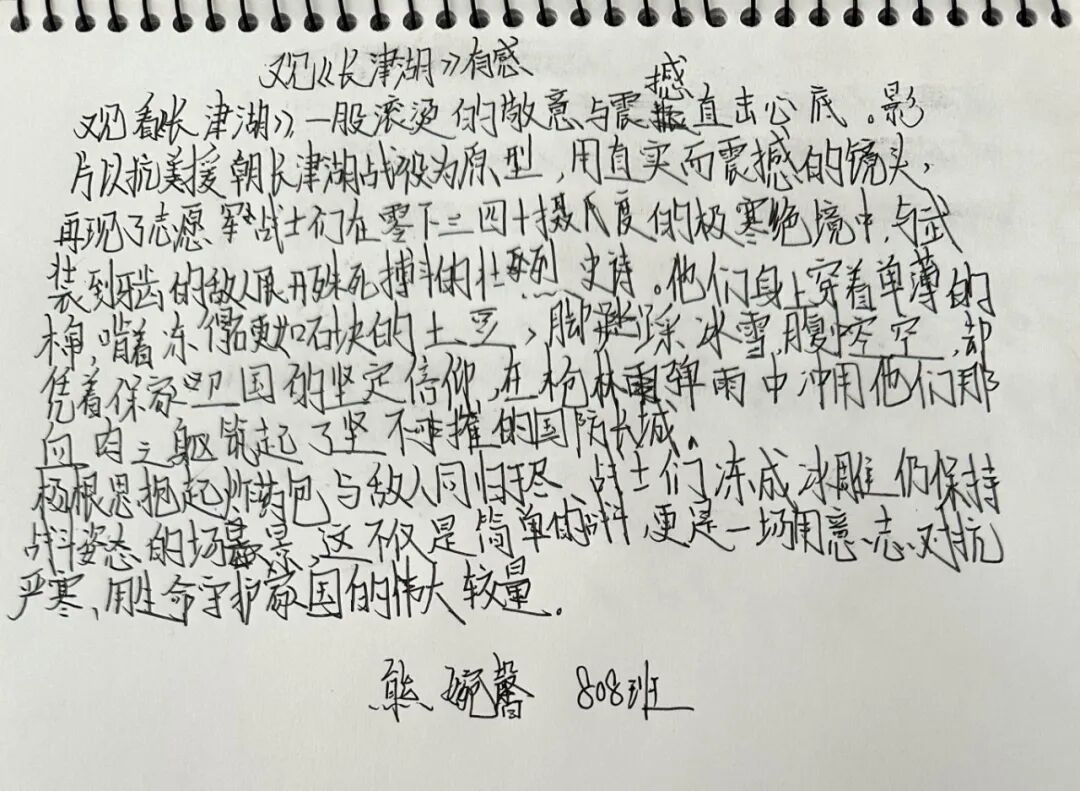 观《长津湖》有感
观看《长津湖》，一股滚烫的敬意与震撼直击心底。影
片以抗美援朝长津湖战役为原型，用真实而震撼的镜头，
再现了志愿军战士们在零下三四十摄氏度的极寒绝境中，与武
装到牙齿的敌人展开殊死搏斗的壮烈史诗。他们身上穿着单薄的
棉，啃着冻得硬如石块的土豆，脚踩冰雪，腹中空空，却
凭着保家卫国的坚定信仰，在枪林弹雨中冲用他们那
血肉之躯筑起了坚不可摧的国防长城。
杨根思抱起炸药包与敌人同归于尽 战士们冻成冰雕仍保持
战斗姿态的场景，这不仅是简单的战斗，更是一场用意志对抗
严寒、用生命守护家国的伟大较量。
熊婉馨 808班